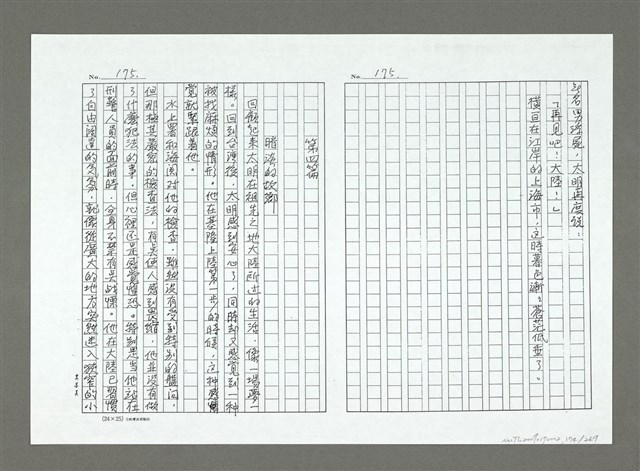 No. 175.
名男溼冕,太明再度說:
「再見吧!大陸!」
橫亘在江岸的上海市,這時暮色漸漸蒼茫低垂了。
No. 175.
第四篇
暗淡的故鄉
回顧起來太明在祖先之地大陸所過的生活,像一場夢一
樣。回到台灣後,太明感到安心了,同時却又感覺到一種
被找麻煩的情形。他在基隆上陸第一步的時候,這種感
覺就緊跟着他。
水上署和海關對他的檢查,雖然沒有受到特別的盤問,
但那極其嚴密的檢查法,有夠使人感到畏縮,他並沒有做
了什麼犯法的事,但心裡还是感覺惶恐。特別是当他站在
刑警人員的面前時,全身不禁有吴战慄。他在大陸已習慣
了自由闊達的气氛,就像從廣大的地方突然进入狹窄的小
(24×25)